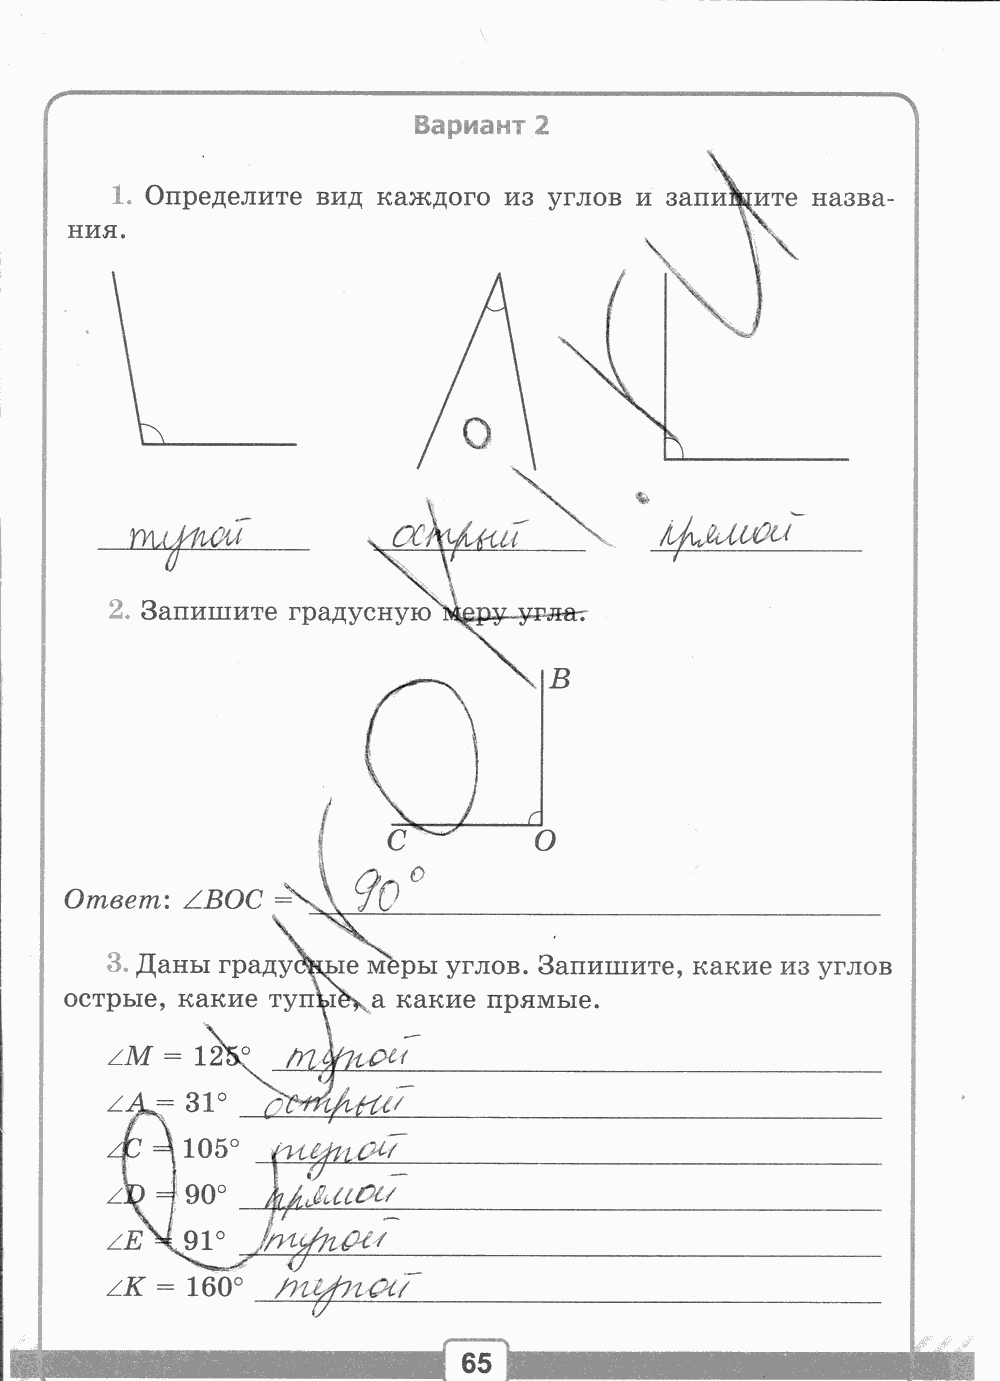 Вариант 2
1. Определите вид каждого из углов и запишите назва-
ния.
тупой острый прямой
2. Запишите градусную меру угла.
B
C O
Ответ: ∠BOC = 90°
3. Даны градусные меры углов. Запишите, какие из углов
острые, какие тупые, а какие прямые.
∠M = 125° тупой
∠A = 31° острый
∠C = 105° тупой
∠D = 90° прямой
∠E = 91° тупой
∠K = 160° тупой
65